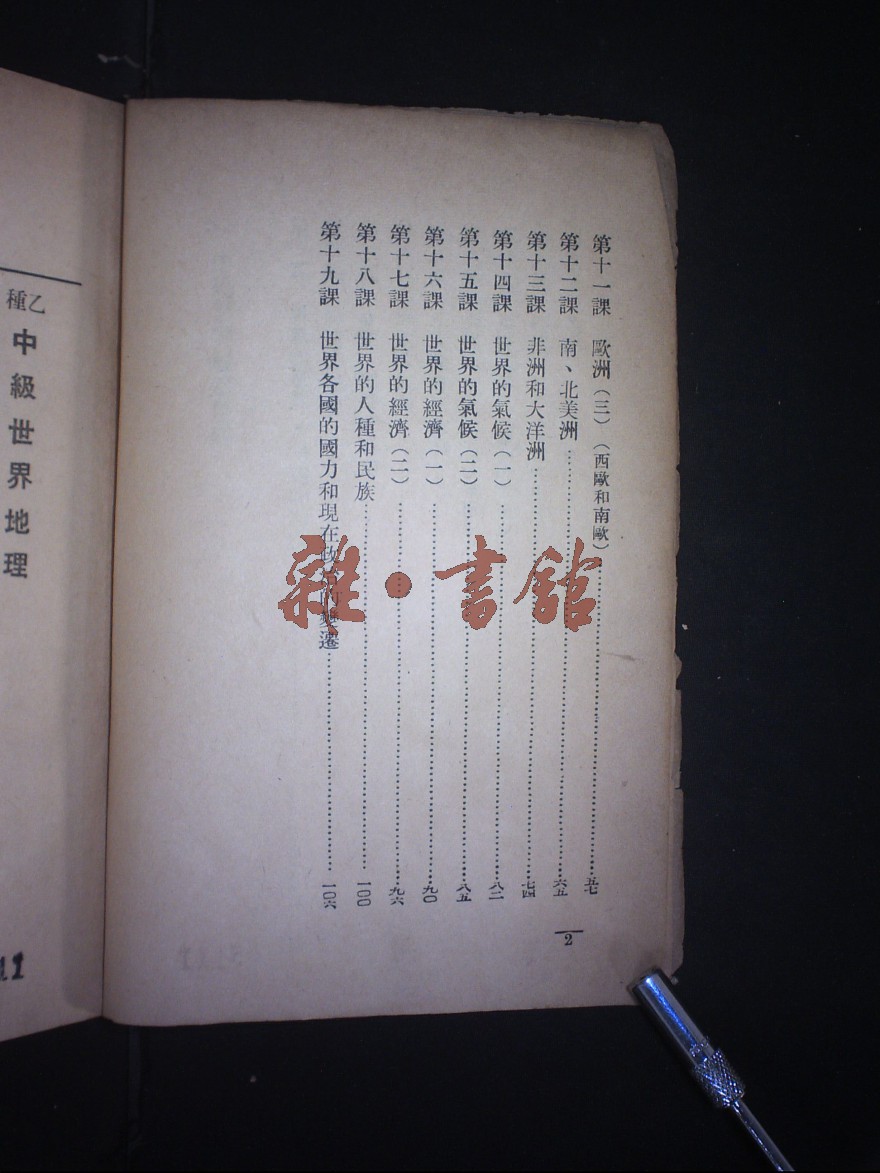 第十一課 歐洲（三）（西歐和南歐）……五七
第十二課 南、北美洲……六五
第十三課 非洲和大洋洲……七四
第十四課 世界的氣候（一）……八二
第十五課 世界的氣候（二）……八五
第十六課 世界的經濟（一）……九〇
第十七課 世界的經濟（二）……九六
第十八課 世界的人種和民族……一〇〇
第十九課 世界各國的國力和現在政變遷……一〇六
2
乙種
中級世界地理
雜·書館